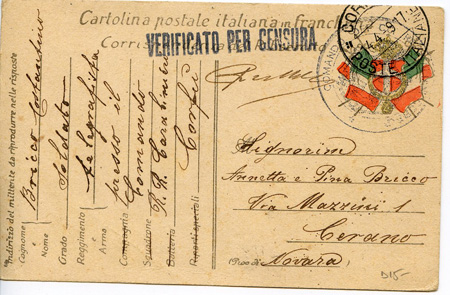 Cartolina postale italiana in franchigia
Corrispondenza
VERIFICATO PER CENSURA
POSTE ITALIANE
COMANDO
Signorine
Annetta e Pina Bricco
Via Mazzini 1
Cerano
Novara
Indirizzo del mittente da riprodurre nelle risposte
Cognome Bricco Costantino
e
Nome
Grado Soldato
Reggimento Telegrafista
e
Arma presso il
Compagnia Comando
Squadrone R.R. Carabinieri
Batteria Corfù
Riparti speciali
D15-